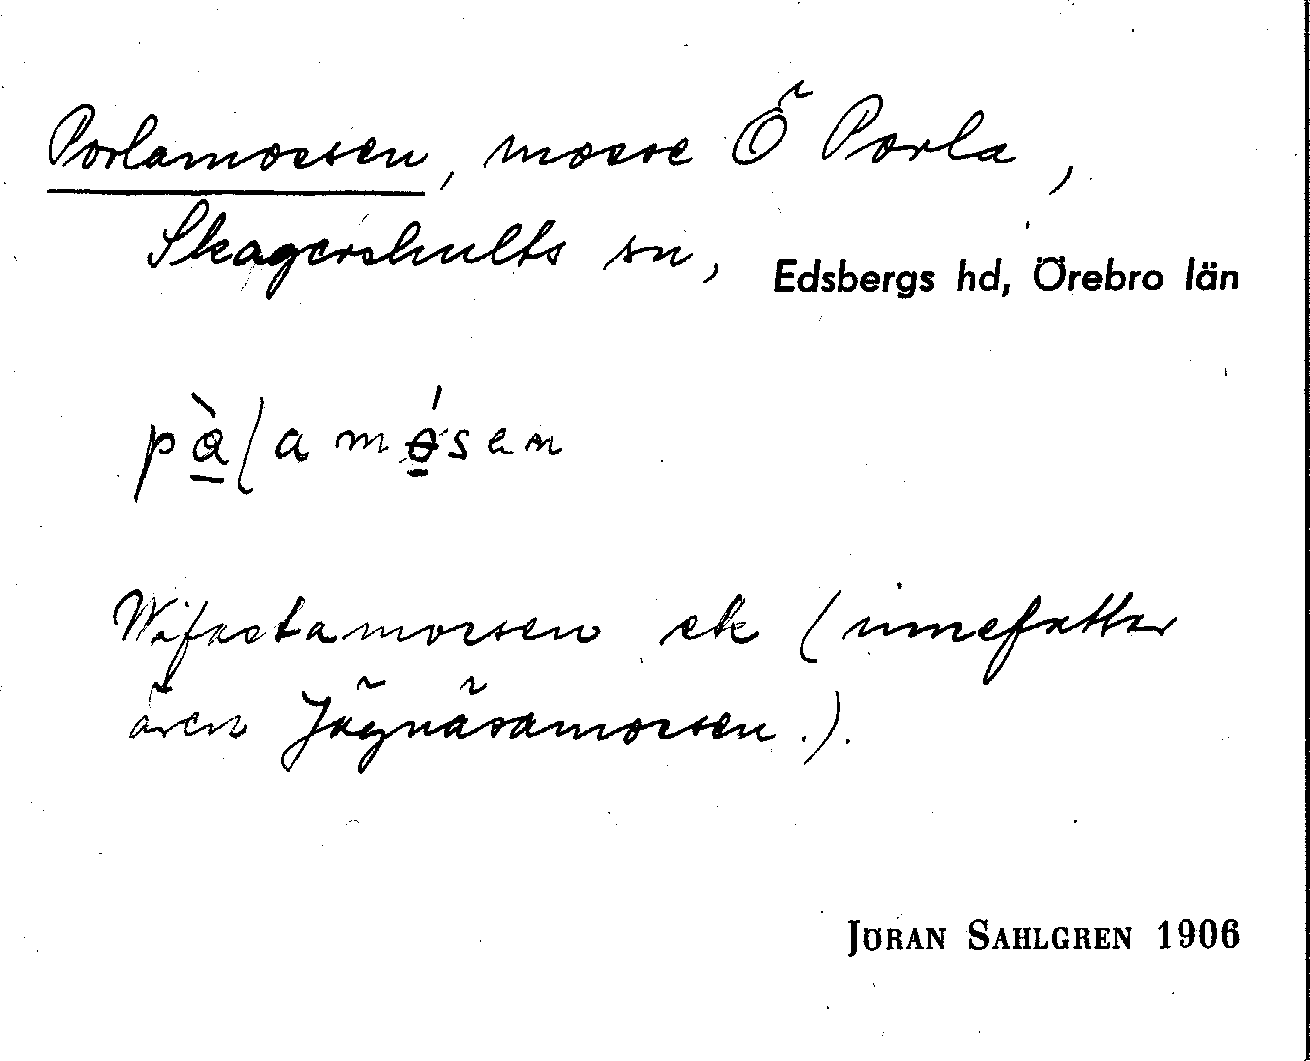 Porlamossen, mosse Ö Porla,
Skagershults sn, Edsbergs hd, Örebro län
pàlamósen
Wifastamossen ek (innefattar
även Jägnäsamossen.).
JÖRAN SAHLGREN 1906